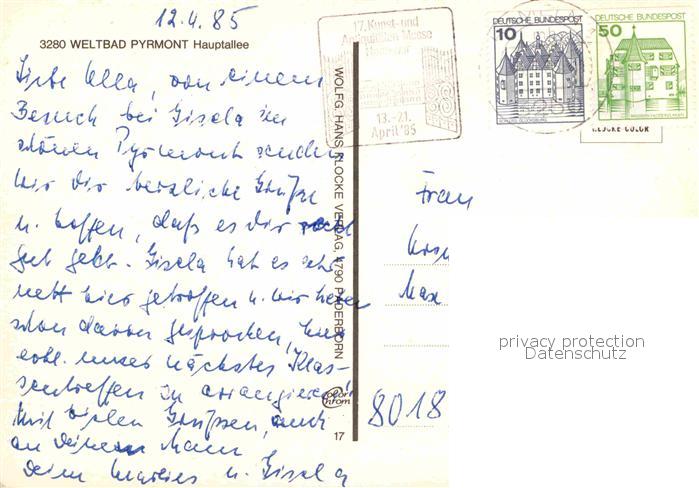 12.4.85
3280 WELTBAD PYRMONT Hauptallee
Liebe Ulla, von einem
Besuch bei Gisela im
schönen Pyrmont senden
wir dir herzliche Grüße
u. hoffen, daß es dir recht
gut geht. Gisela hat es sehr
nett hier getroffen u. wir haben
schon davon gesprochen, hier
evtl. unser nächstes Klas-
sentreffen zu arrangieren!
Mit vielen Grüssen, auch
an Deinen Mann
Deine Marlies u. Gisela
WOLFG. HANS KLOCKE VERLAG, 4790 PADERBORN
color
chrom
17
17. Kunst- und
Antiquitäten Messe
Hannover
13.-21.
April '85
DEUTSCHE BUNDESPOST
10
SCHLOSS GLÜCKSBURG
DEUTSCHE BUNDESPOST
50
KLOCKE-COLOR
Frau
Max
8018
privacy protection
Datenschutz